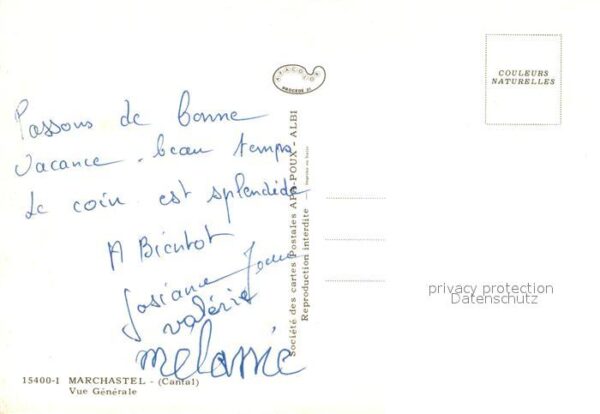 Passons de bonne
vacance. beau temps
Le coin est splendide
A Bientot
Josiane
Valérie
melanie
15400-1 MARCHASTEL - (Cantal)
Vue Générale
APACOLOR
PROCEDE
Société des cartes Postales APA-POUX - ALBI
Reproduction interdite
COULEURS
NATURELLES
privacy protection
Datenschutz